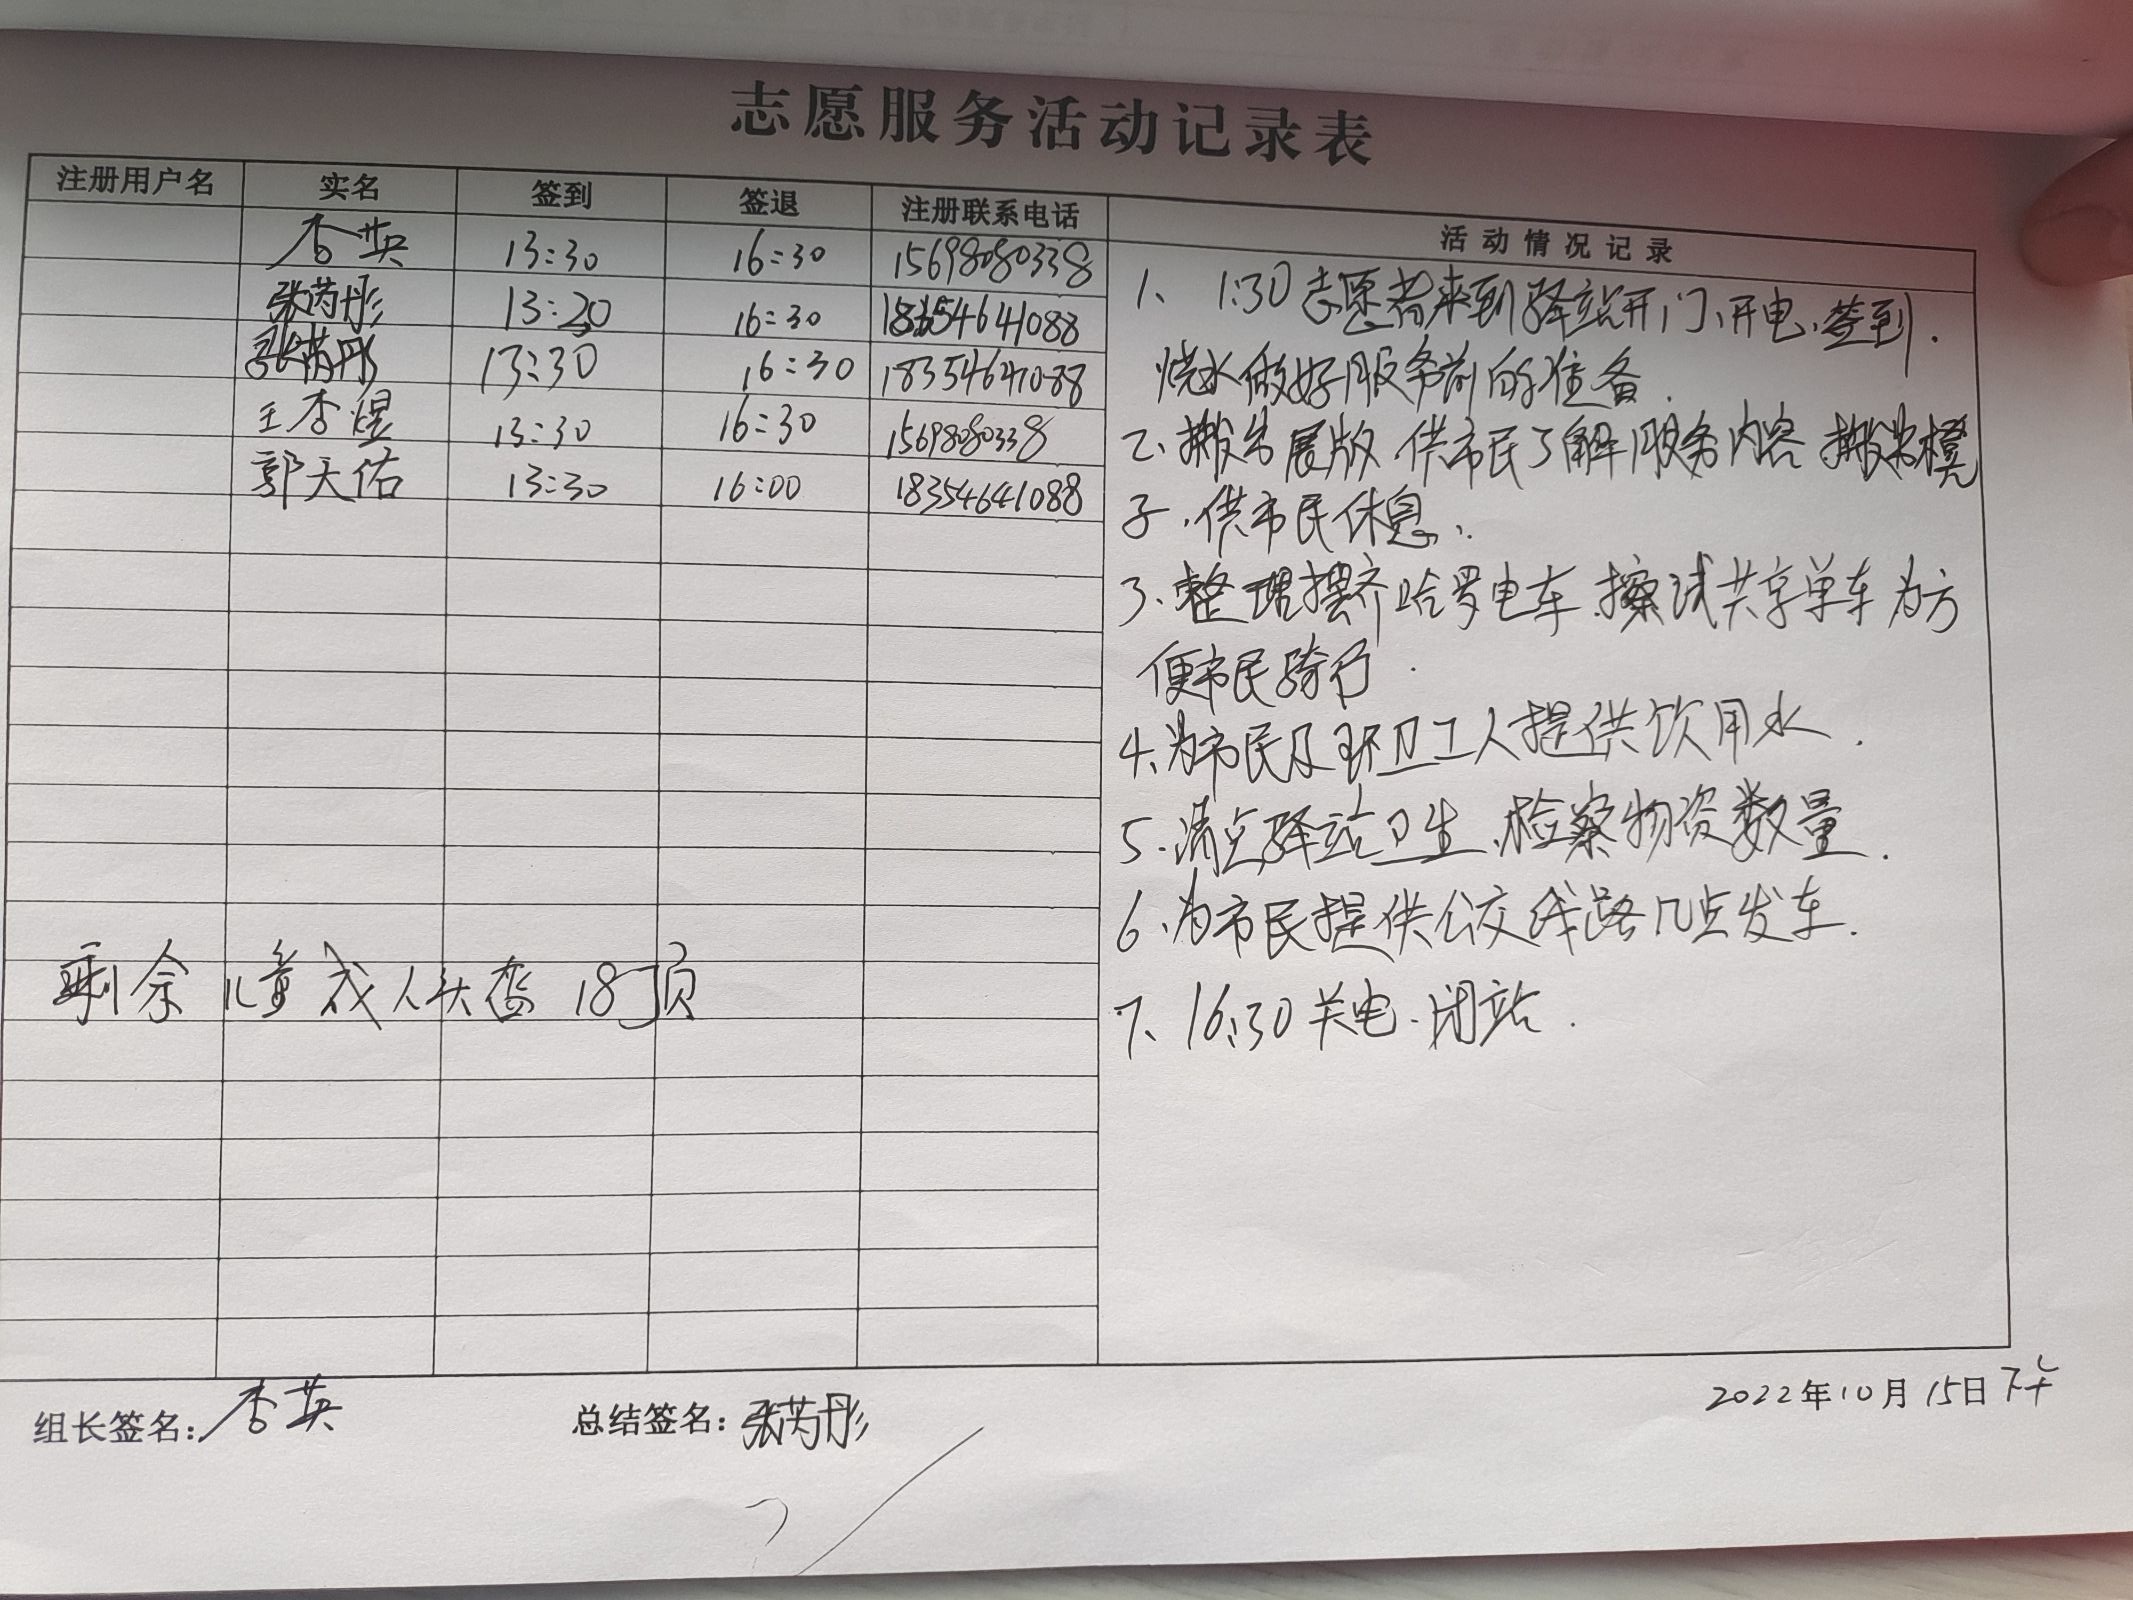 志愿服务活动记录表
注册用户名 实名 签到 签退 注册联系电话 活动情况记录
李英 13:30 16:30 15698080338
张芮彤 13:20 16:30 18354641088
张芮彤 13:30 16:30 18354641088
王李煜 13:30 16:30 15698080338
郭天佑 13:30 16:00 18354641088
1、1:30志愿者来到驿站开门、开电、签到.
烧水做好服务前的准备.
2、搬出展版 供市民了解服务内容 搬出櫈
子、供市民休息.
3、整理摆齐哈罗电车、擦试共享单车为方
便市民骑行.
4、为市民及环卫工人提供饮用水.
5、清点驿站卫生、检察物资数量.
6、为市民提供公交线路几点发车.
7、16:30关电、闭站.
剩余儿童成人头盔18顶
组长签名:李英 总结签名:张芮彤 2022年10月15日下午